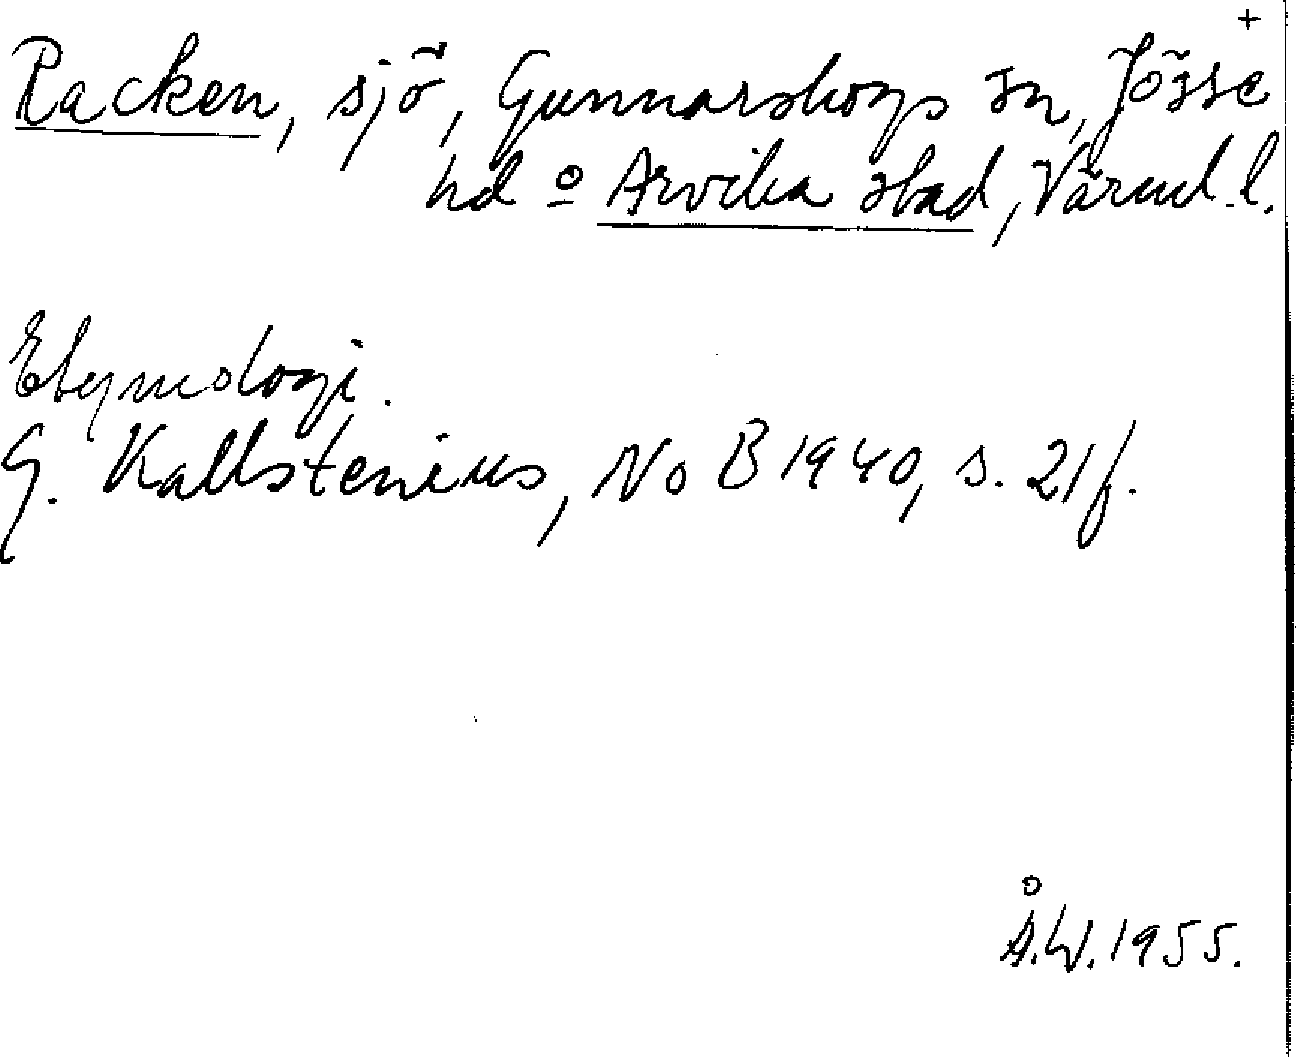 +
Racken, sjö, Gunnarskogs sn, Jösse
hd o Arvika stad, Värml. l.
Etymologi.
G. Kallstenius, NoB 1940, s. 21f.
Å.W. 1955.